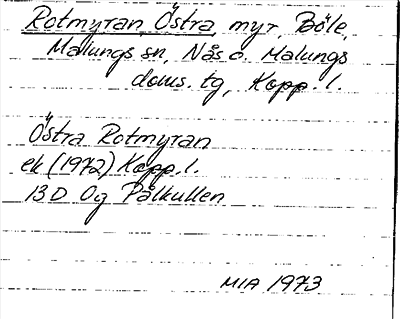 Rotmyran, Östra, myr, Böle,
Malungs sn, Nås o. Malungs
doms. tg, Kopp. l.
Östra Rotmyran
ek (1972) Kopp. l.
13D 0g Pålkullen
MIA 1973